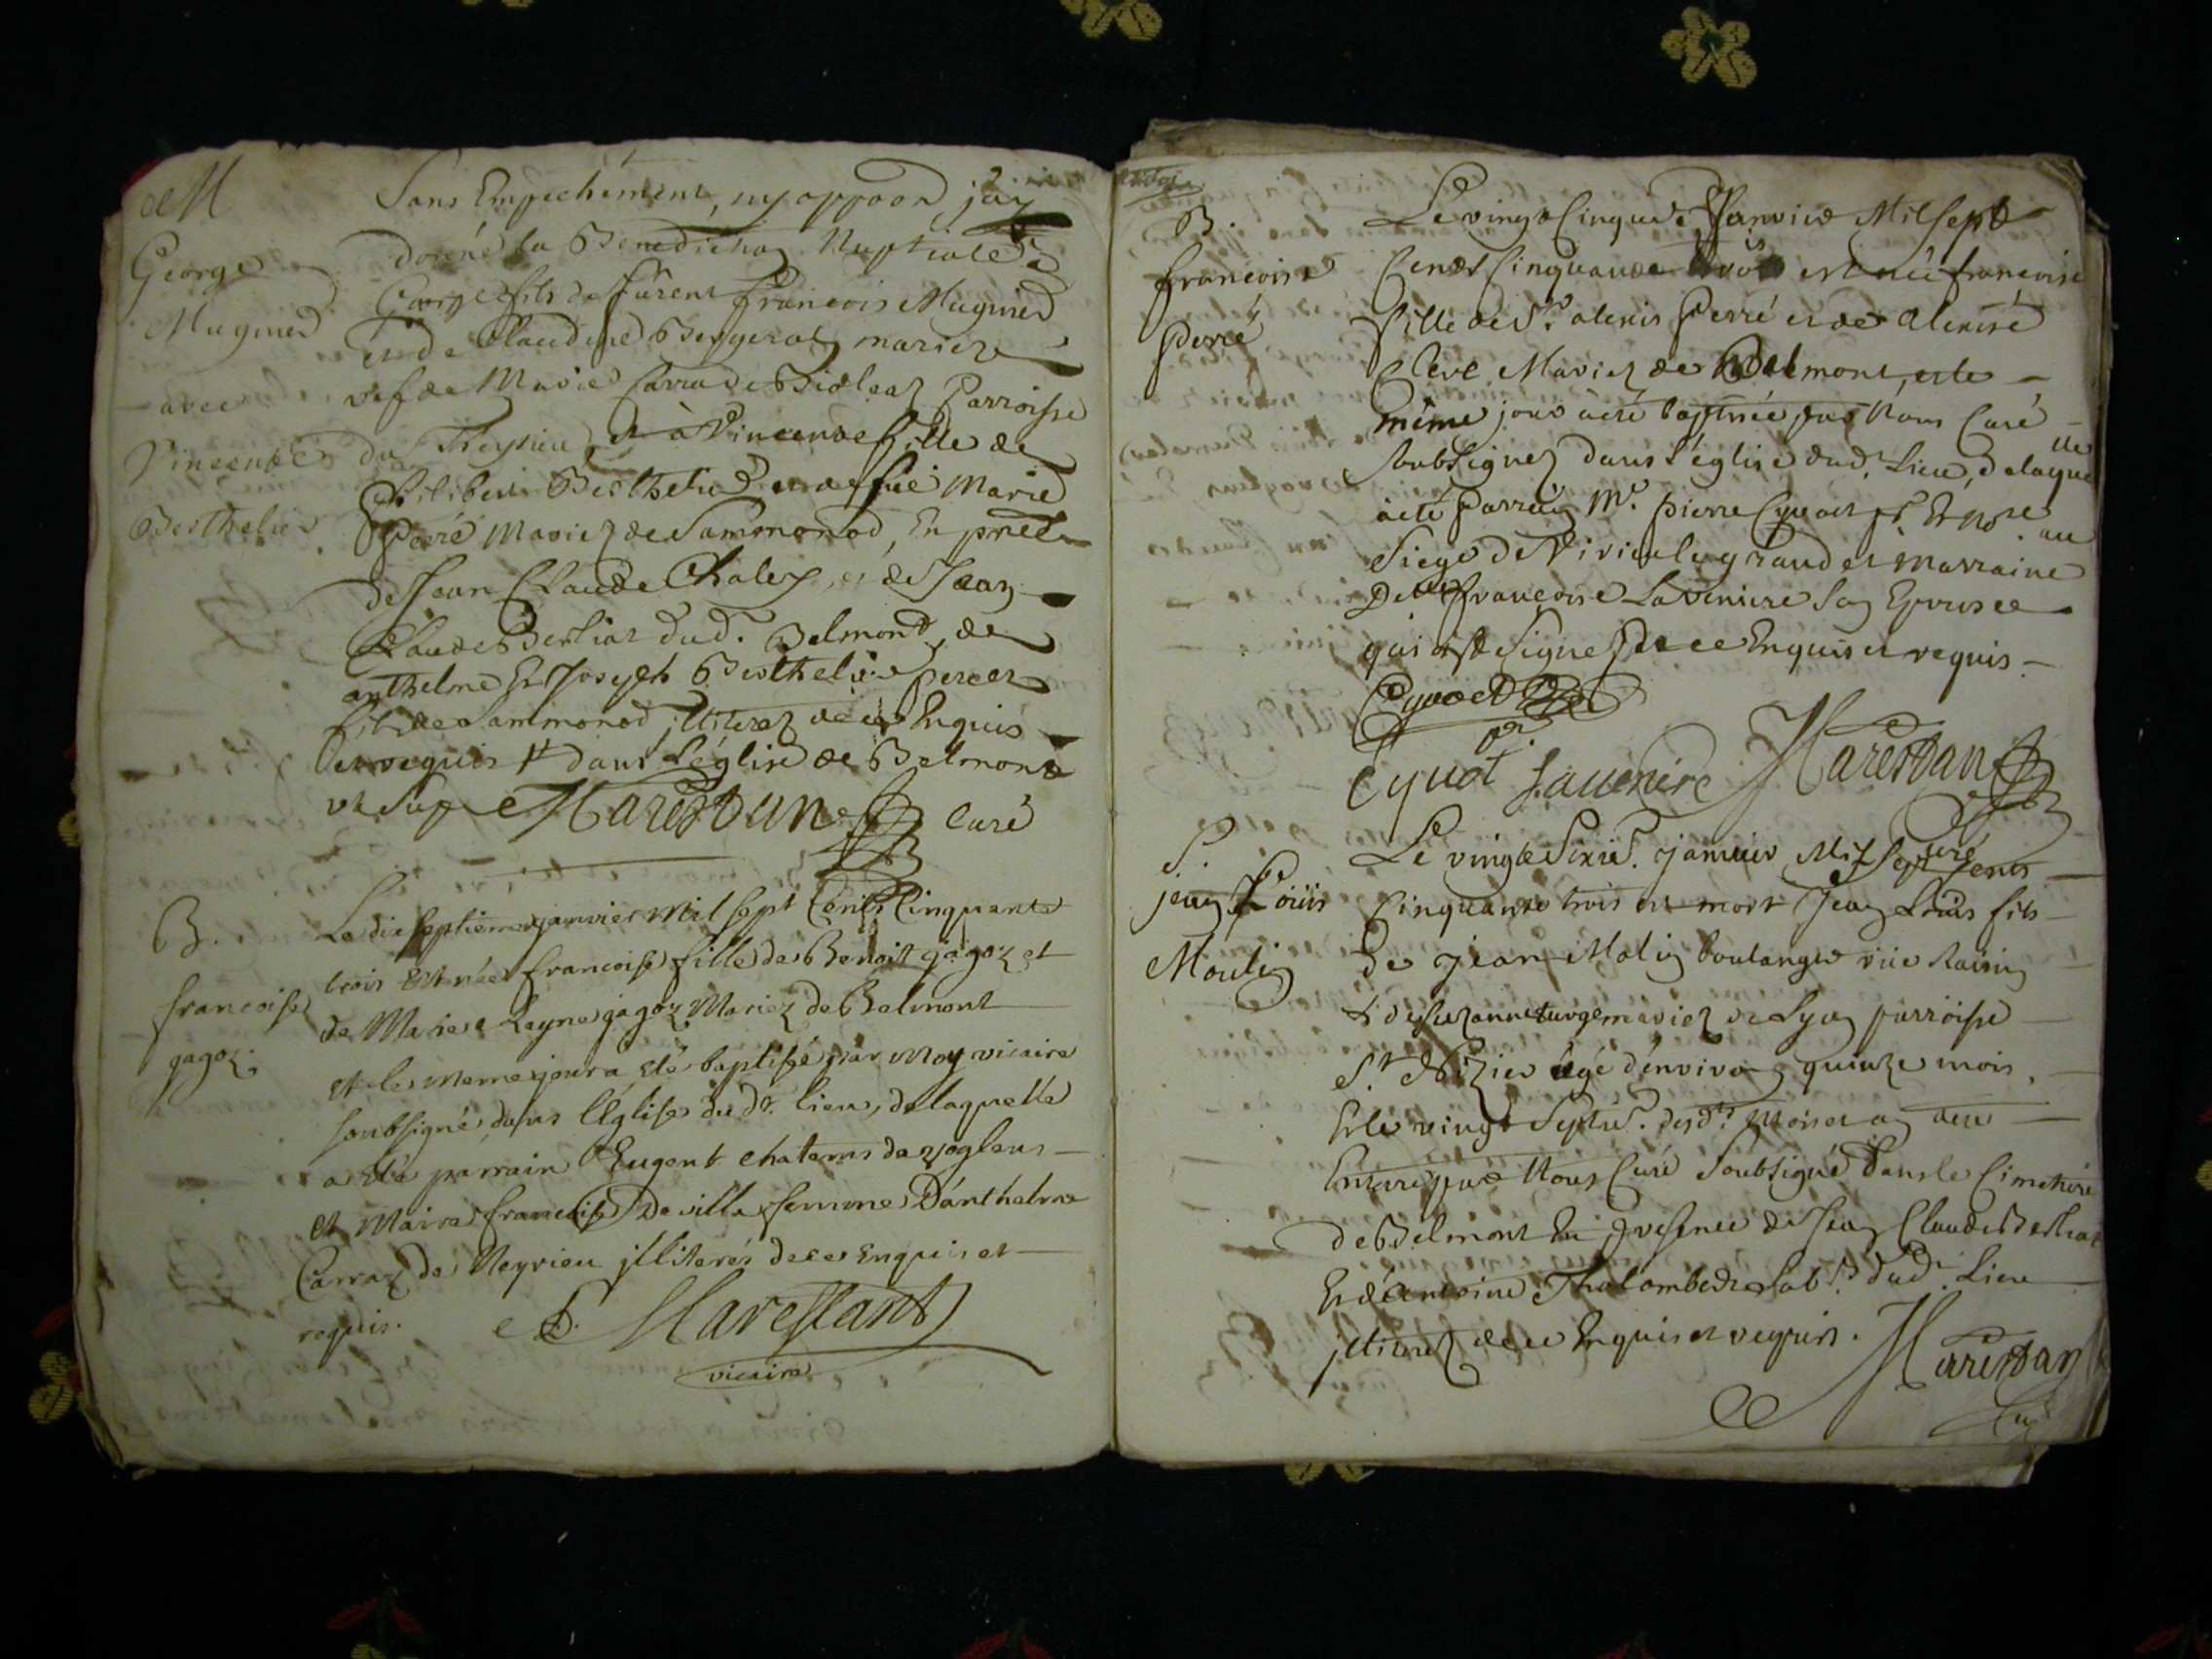 M
George
Mugnier
avec
Vincente
Berthelier
Sans Empechement, ny oppoon, jay
donné la Benediction Nuptiale à
George fils de ffurent francois Mugnier
et de Claudine Bergerat mariez
vef de Marie Carra de Parroisse
du Cheysieu, et à Vincente fille de
Philibert Berthelier et de fue Marie
Perré Mariez de Sammonod, En pnce
de Jean Claude Chaley, et de Jean
Claude Berliat dud. Belmont, de
anthelme Et Joseph Berthelier pere et
fils de Sammonod jlliterez de ce Enquis
et requis dans l'église de Belmont
vt Sup Marestan Curé
B.
francoise
gagoz.
Le dix septieme janvier Mil sept Cents Cinquante
trois Est née francoise fille de Benoit gagoz et
de Marie Reyne gagoz Mariez de Belmont
et le meme jour a eté baptisé par Moy vicaire
soubsigné dans l'Eglise du dt. lieu, de laquelle
a eté parrain Eugent chatenis de vogleus
et Maire francoise Deville femme D'anthelme
Carraz de Neyrieu jlliterés de ce Enquis et
requis. Marestant
vicaire
B.
francoise
Perré
Le vingt Cinque Janvier Mil sept
Cents Cinquante trois est née francoise
fille de Sr. alexis Perré et de
Cleve Mariez de Belmont, et le
même jour a eté baptisée, par Nous Curé
soubsignez dans l'église dud. Lieu, de laquelle
a eté Parrain Mr. pierre Cyuoct Et Nore. au
Siege de Virieu le grand et marraine
Delle francoise Laveniere son Epouse
qui Signé de ce Enquis et requis.
Cyuoct
Cyuot Lavenire Marestan
Curé
S.
jean Loüis
Moulin
Le vingt Sixie. janvier Mil Sept Cents
Cinquante trois est mort Jean Loüis fils
de jean Molin boulanger rüe Raisin
& de Suzanne turge mariez de Lyon parroisse
St. Nizier âgé d'environ quinze mois,
Et le vingt Septie. desdts. Mois et an a eté
Enterré par Nous Curé Soubsigné dans le Cimetiére
de Belmont En presence de Jean Claude Berliat
Et d'Antoine Thalombet dud. Lieu
jlliterez de ce Enquis et requis. Marestan
Curé